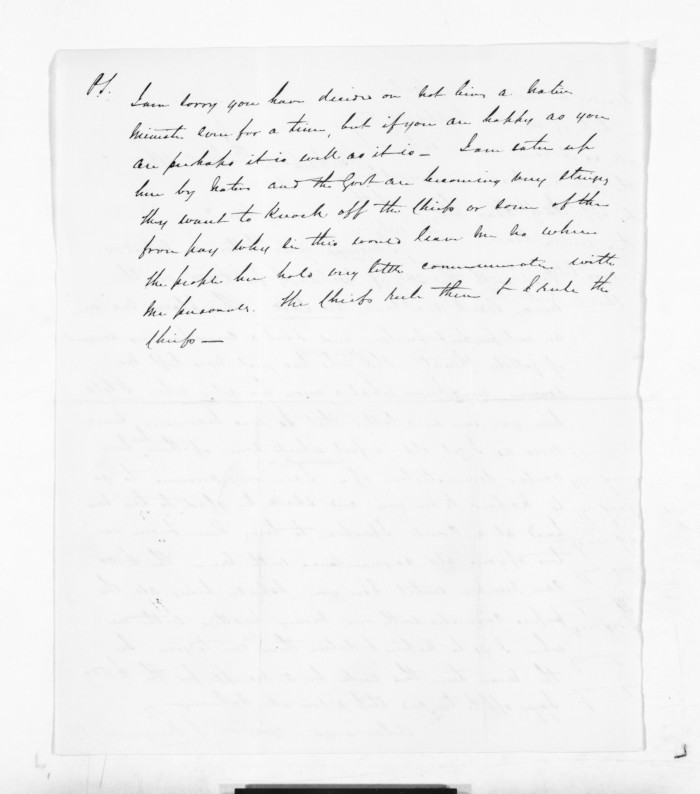 P.S.
I am sorry you have decided on not being a Native
Minister even for a time, but if you are happy as you
are perhaps it is well as it is — I am eaten up
here by Natives and the Govt are becoming very stingy
they want to knock off the Chiefs or some of them
from pay why Sir this would leave me no where
the people here hold very little communication with
me personally. The Chiefs rule them & I rule the
Chiefs —